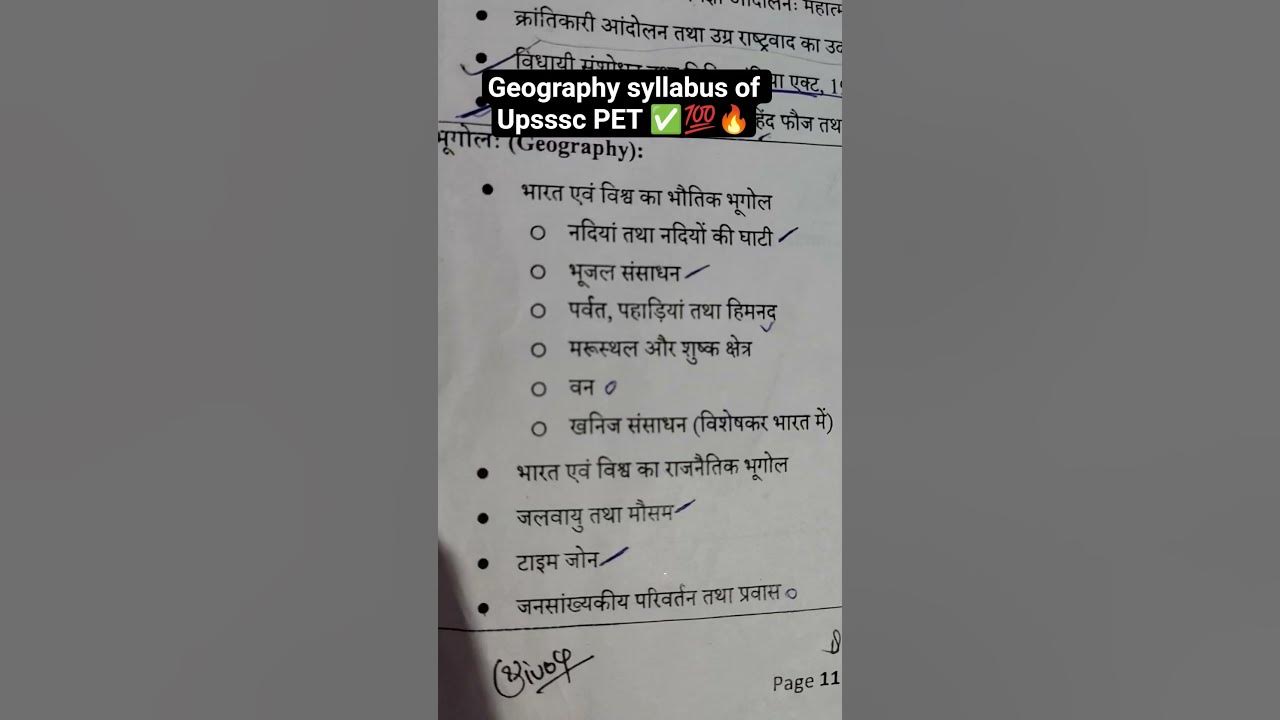 आंदोलनः महात्म
क्रांतिकारी आंदोलन तथा उग्र राष्ट्रवाद का उद
विधायी संशोधन तथा एक्ट, 19
Geography syllabus of
Upsssc PET ✅💯🔥
हिंद फौज तथ
भूगोलः (Geography):
भारत एवं विश्व का भौतिक भूगोल
नदियां तथा नदियों की घाटी
भूजल संसाधन
पर्वत, पहाड़ियां तथा हिमनद
मरूस्थल और शुष्क क्षेत्र
वन
खनिज संसाधन (विशेषकर भारत में)
भारत एवं विश्व का राजनैतिक भूगोल
जलवायु तथा मौसम
टाइम जोन
जनसांख्यकीय परिवर्तन तथा प्रवास
Page 11